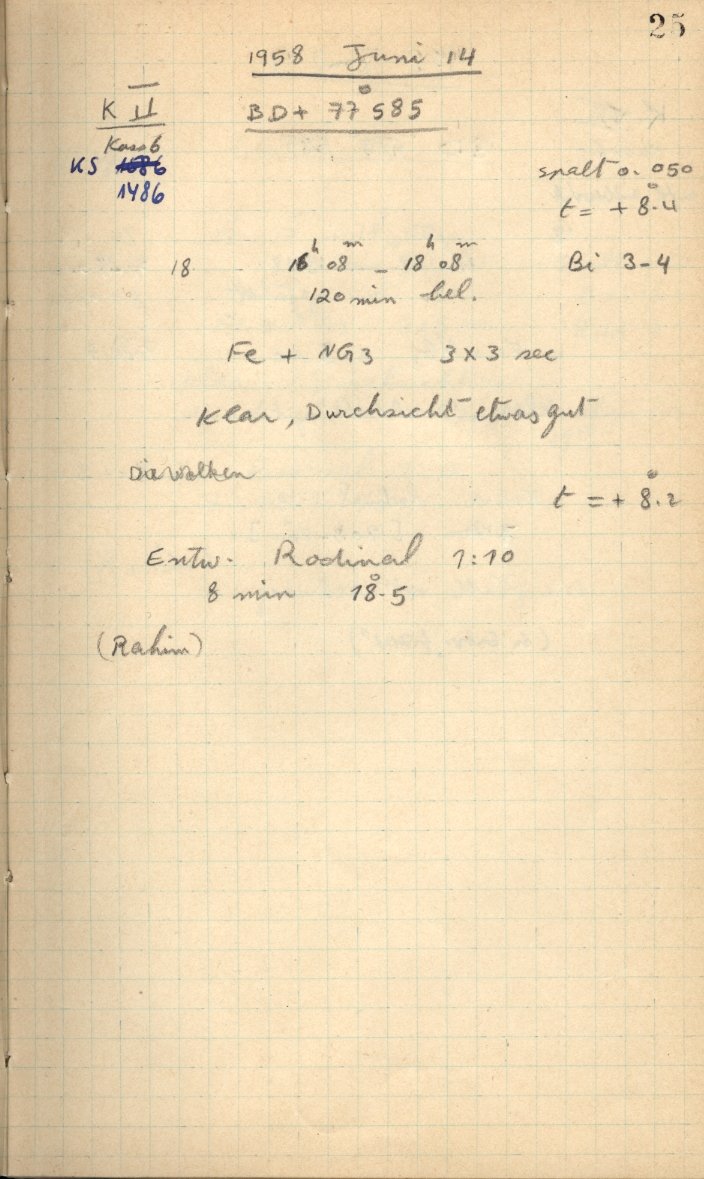 25
1958 Juni 14
K II BD+ 77° 585
Kass 6
KS 1686
1486
spalt 0.050
t = + 8°.4
18 16h 08m - 18h 08m Bi 3-4
120 min bel.
Fe + NG3 3x3 sec
Klar, Durchsicht etwas gut
t = + 8°.2
Entw. Rodinal 1:10
8 min 18°.5
(Rahim)